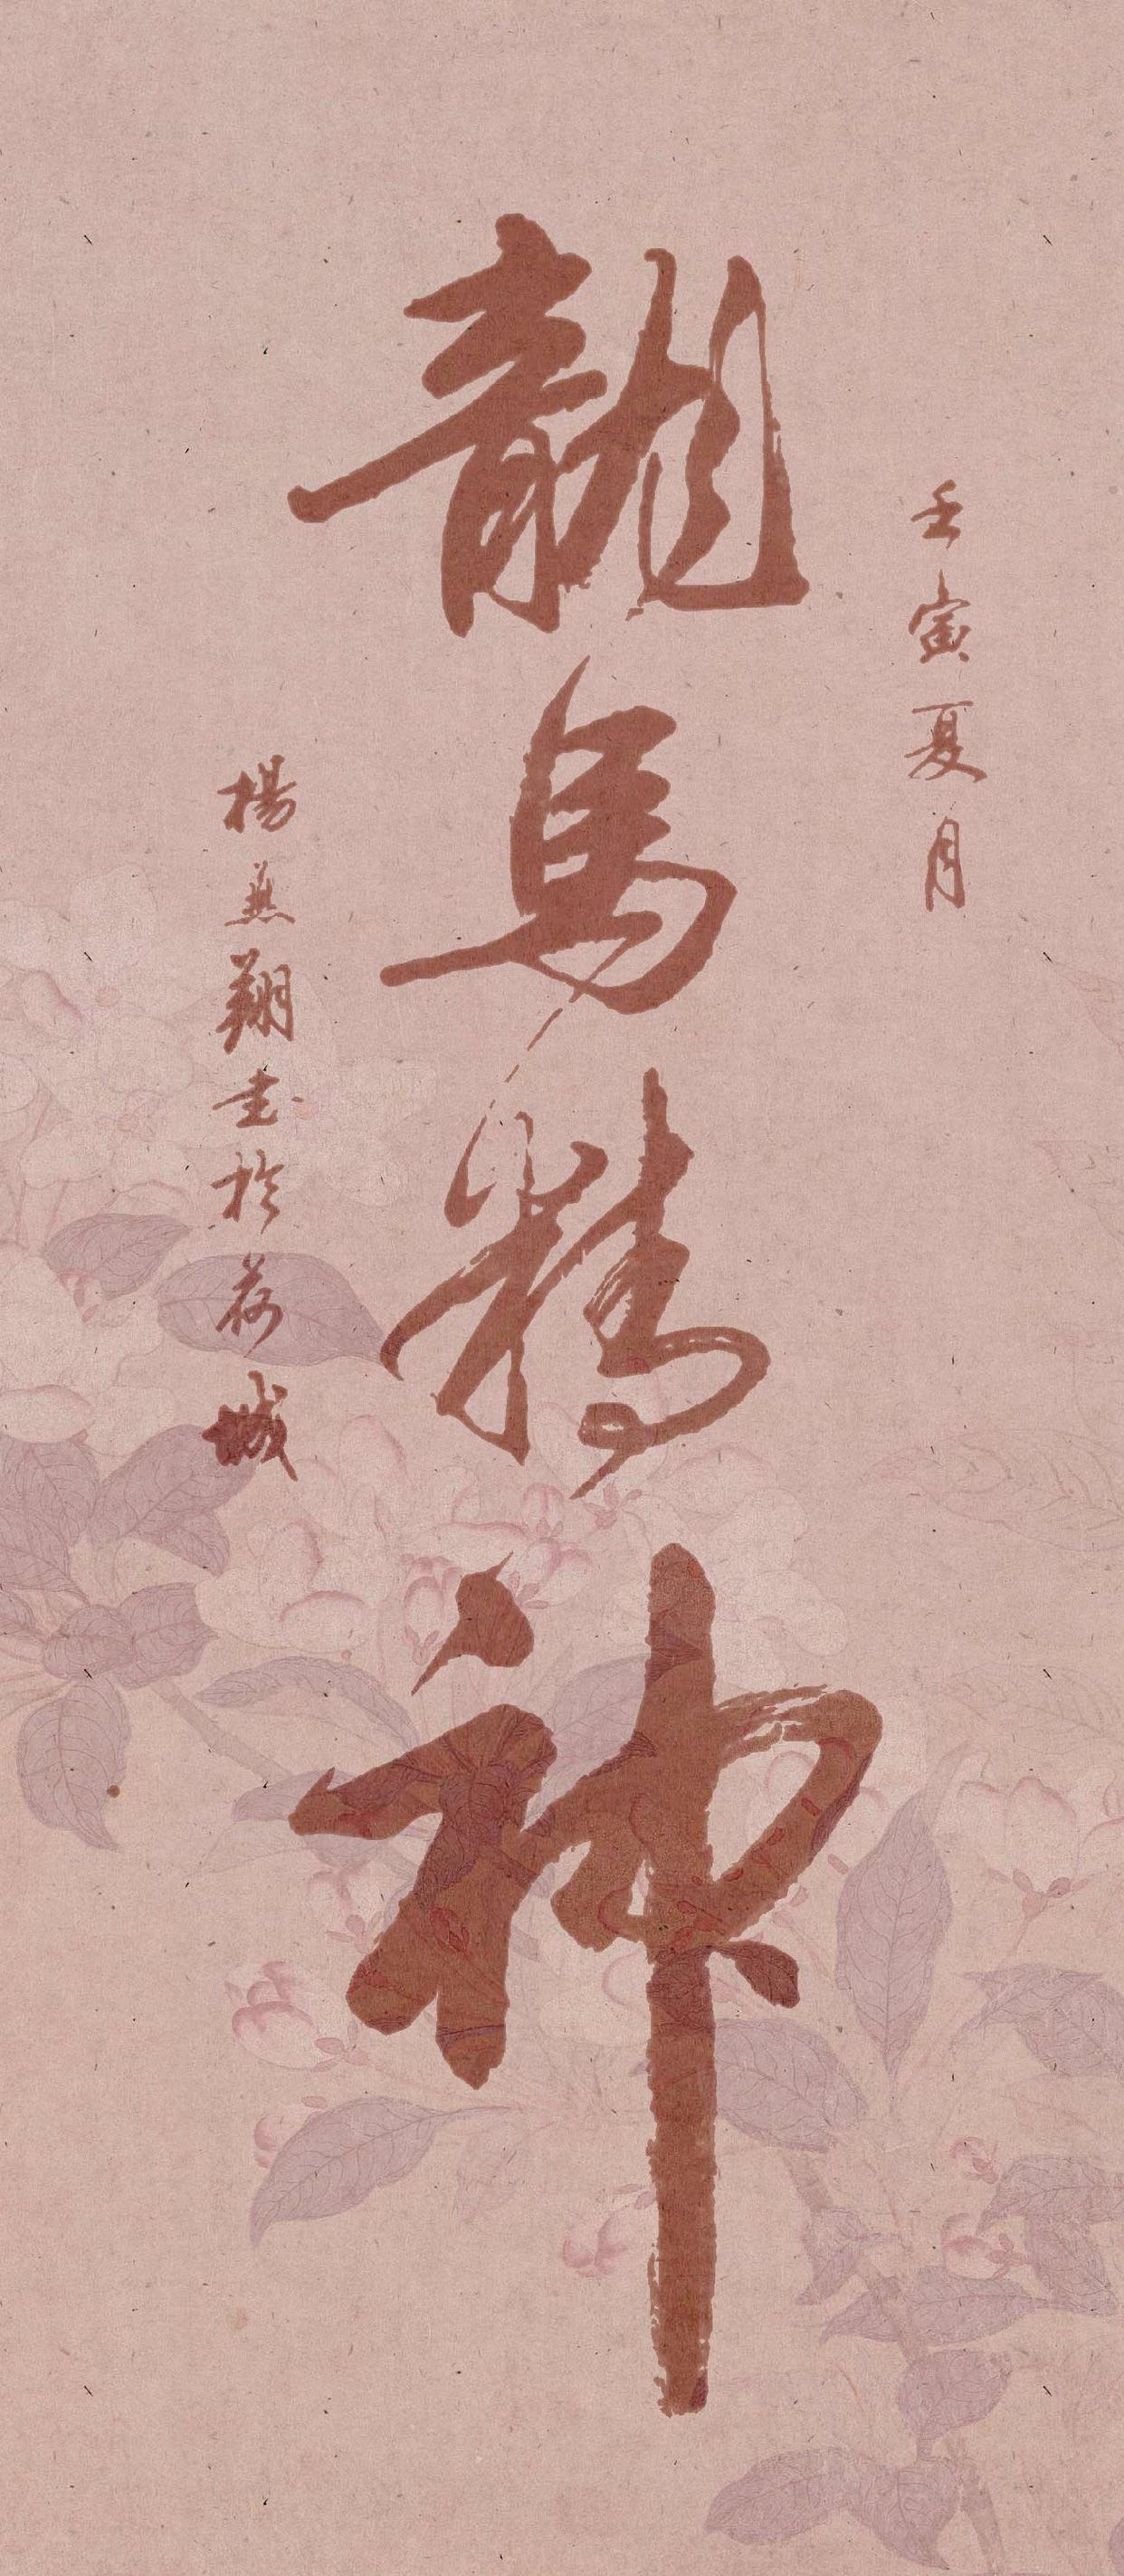 壬寅夏月
龍馬精神
楊燕翔书於荷城